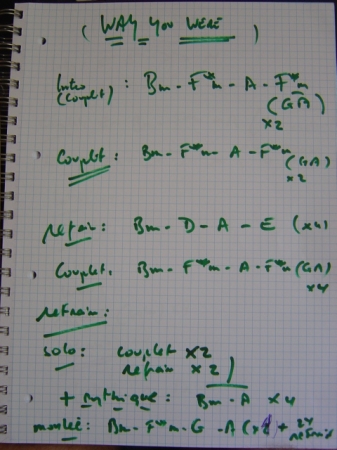 ( WAY YOU WERE )
Intro : Bm - F#m - A - F#m
(Couplet) (GA)
x2
Couplet : Bm - F#m - A - F#m (GA)
x2
refrain : Bm - D - A - E (x4)
Couplet : Bm - F#m - A - F#m (GA)
x4
refrain :
solo : couplet x2
refrain x2
+ rythmique : Bm - A x4
montée : Bm - F#m - G - A + 2x
refrain